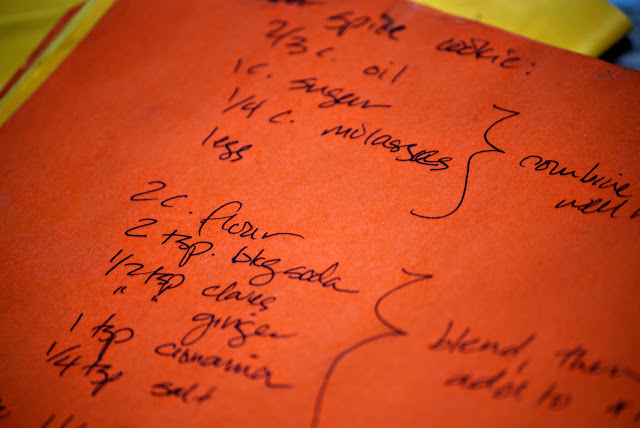 spice cookie:
2/3 c. oil
1 c. sugar
1/4 c. molasses
1 egg
combine
well
2 c. flour
2 tsp. bkg soda
1/2 tsp cloves
" " ginger
1 tsp cinnamon
1/4 tsp salt
blend, then
add to